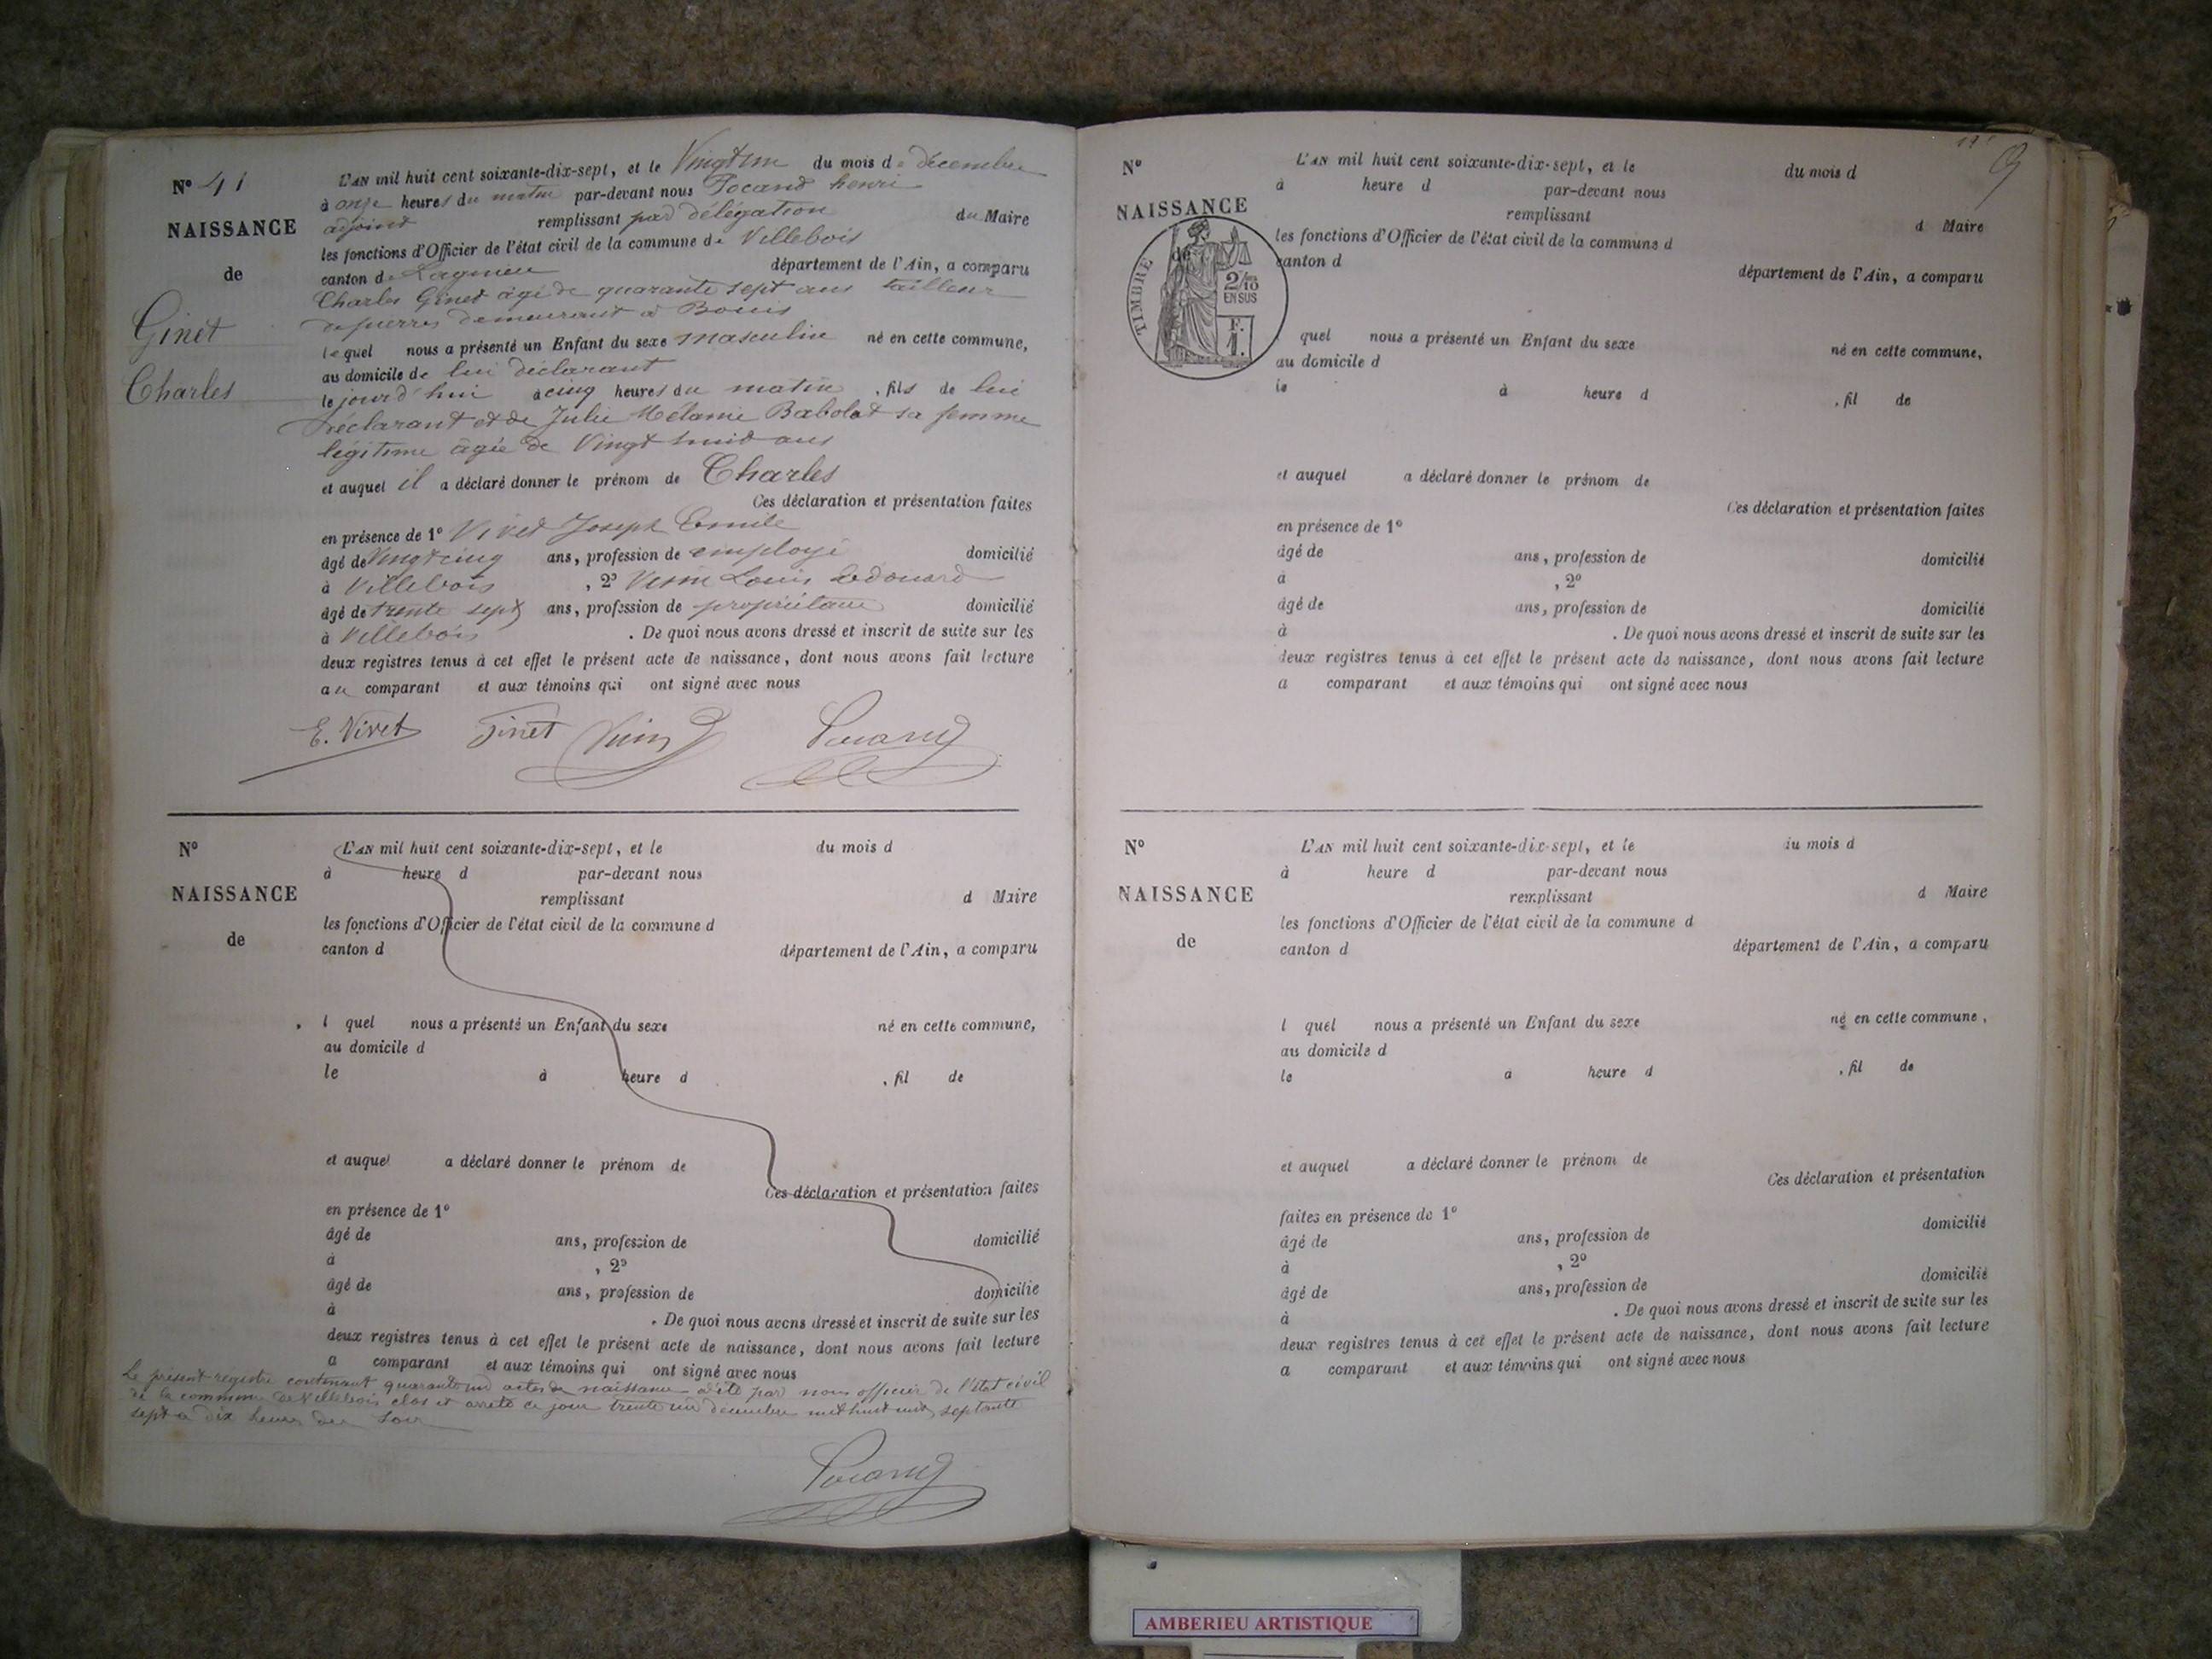 N° 41
NAISSANCE
de
Ginet
Charles
L'AN mil huit cent soixante-dix-sept, et le Vingt un du mois de décembre
à onze heures du matin par-devant nous Pocand henri
adjoint remplissant par délégation du Maire
les fonctions d'Officier de l'état civil de la commune de Villebois
canton de Lagnieu département de l'Ain, a comparu
Charles Ginet âgé de quarante sept ans tailleur
de pierres demeurant à Bouis
lequel nous a présenté un Enfant du sexe masculin né en cette commune,
au domicile de lui déclarant
le jourd'hui à cinq heures du matin, fils de lui
déclarant et de Julie Mélanie Babolat sa femme
légitime âgée de Vingt huit ans
et auquel il a déclaré donner le prénom de Charles
Ces déclaration et présentation faites
en présence de 1° Vivet Joseph Emile
âgé de Vingt cinq ans, profession de employé domicilié
à Villebois, 2° Louis Edouard
âgé de trente sept ans, profession de propriétaire domicilié
à Villebois. De quoi nous avons dressé et inscrit de suite sur les
deux registres tenus à cet effet le présent acte de naissance, dont nous avons fait lecture
au comparant et aux témoins qui ont signé avec nous
E. Vivet Ginet Pocand
N°
NAISSANCE
de
L'AN mil huit cent soixante-dix-sept, et le du mois d
à heure d par-devant nous
remplissant d Maire
les fonctions d'Officier de l'état civil de la commune d
canton d département de l'Ain, a comparu
l quel nous a présenté un Enfant du sexe né en cette commune,
au domicile d
le à heure d , fil de
et auquel a déclaré donner le prénom de
Ces déclaration et présentation faites
en présence de 1°
âgé de ans, profession de domicilié
à , 2°
âgé de ans, profession de domicilié
à . De quoi nous avons dressé et inscrit de suite sur les
deux registres tenus à cet effet le présent acte de naissance, dont nous avons fait lecture
a comparant et aux témoins qui ont signé avec nous
Le présent registre contenant quarante un actes de naissance a été par nous officier de l'état civil
de la commune de Villebois clos et arrêté ce jour trente un décembre mil huit cent septante
sept à dix heures du soir
Pocand
9
N°
NAISSANCE
de
TIMBRE
2/10
EN SUS
F.
1.
L'AN mil huit cent soixante-dix-sept, et le du mois d
à heure d par-devant nous
remplissant d Maire
les fonctions d'Officier de l'état civil de la commune d
canton d département de l'Ain, a comparu
quel nous a présenté un Enfant du sexe né en cette commune,
au domicile d
le à heure d , fil de
et auquel a déclaré donner le prénom de
Ces déclaration et présentation faites
en présence de 1°
âgé de ans, profession de domicilié
à , 2°
âgé de ans, profession de domicilié
à . De quoi nous avons dressé et inscrit de suite sur les
deux registres tenus à cet effet le présent acte de naissance, dont nous avons fait lecture
a comparant et aux témoins qui ont signé avec nous
N°
NAISSANCE
de
L'AN mil huit cent soixante-dix-sept, et le du mois d
à heure d par-devant nous
remplissant d Maire
les fonctions d'Officier de l'état civil de la commune d
canton d département de l'Ain, a comparu
l quel nous a présenté un Enfant du sexe né en cette commune,
au domicile d
le à heure d , fil de
et auquel a déclaré donner le prénom de
Ces déclaration et présentation
faites en présence de 1°
âgé de ans, profession de domicilié
à , 2°
âgé de ans, profession de domicilié
à . De quoi nous avons dressé et inscrit de suite sur les
deux registres tenus à cet effet le présent acte de naissance, dont nous avons fait lecture
a comparant et aux témoins qui ont signé avec nous
AMBERIEU ARTISTIQUE